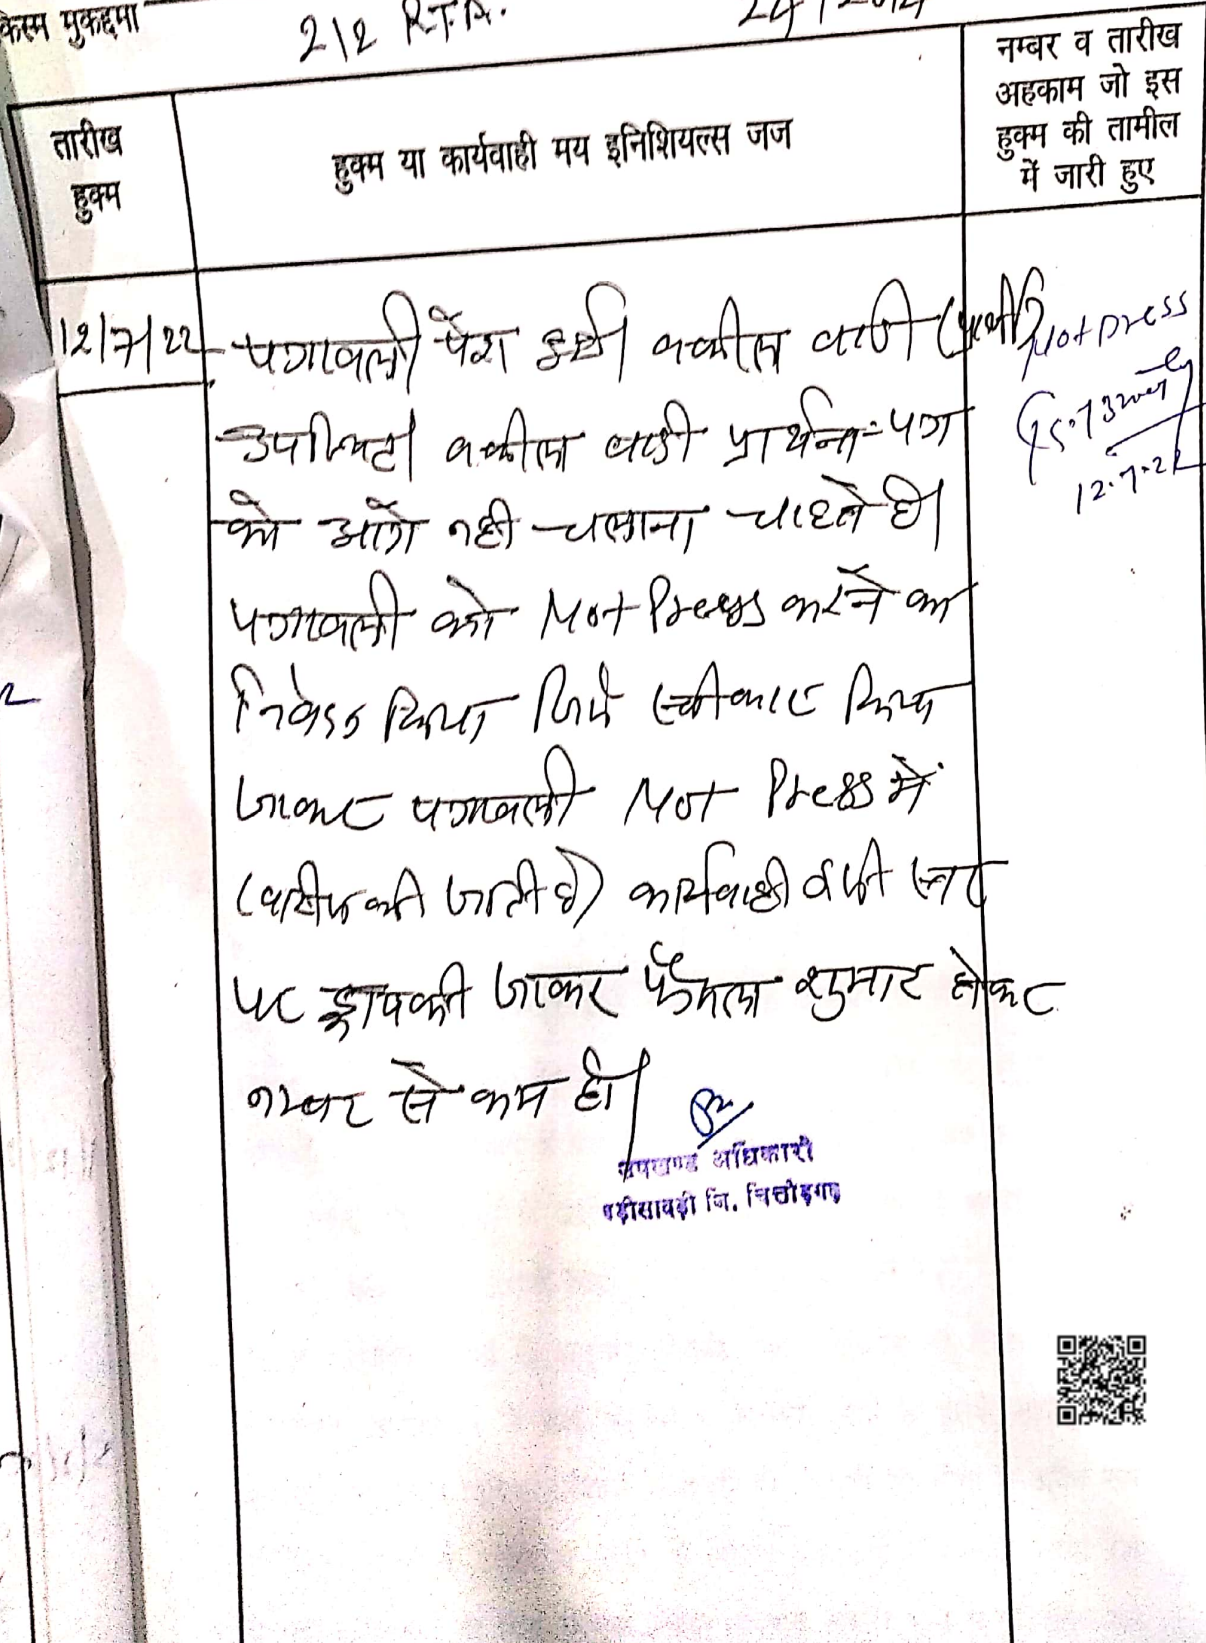 किस्म मुकद्दमा 212 R.T.A.
तारीख हुक्म
हुक्म या कार्यवाही मय इनिशियल्स जज
नम्बर व तारीख
अहकाम जो इस
हुक्म की तामील
में जारी हुए
12/7/22 पत्रावली पेश हुई। वकील वादी (प्रार्थी)
उपस्थित। वकील वादी प्रार्थना-पत्र
को आगे नही चलाना चाहते है।
पत्रावली को Not Press करने का
निवेदन किया जिसे स्वीकार किया
जाकर पत्रावली Not Press में
(खारीज की जाती है) कार्यवाही इसी स्तर
पर ड्राप की जाकर फैसला शुमार होकर
नम्बर से कम हो।
Not press
12.7.22
उपखण्ड अधिकारी
बड़ीसादड़ी जि. चित्तोड़गढ़